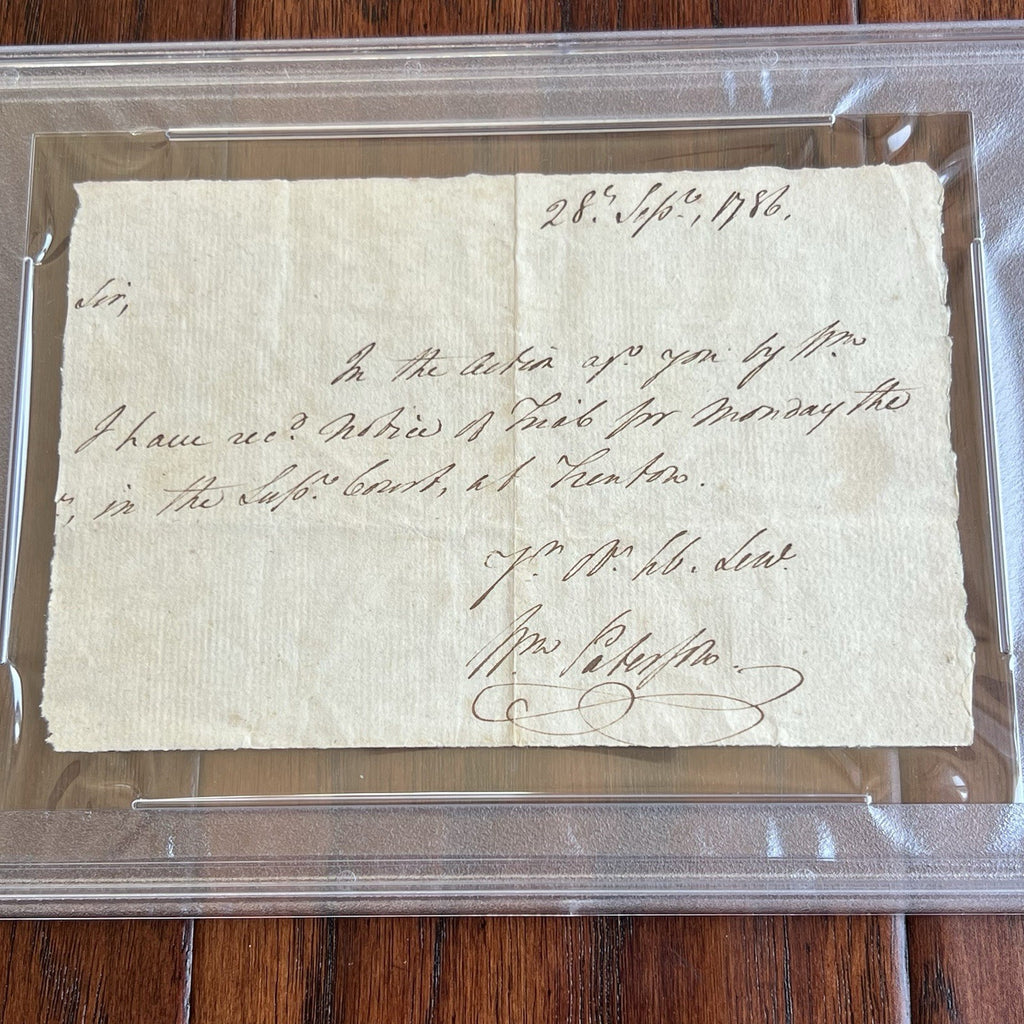 28th. Sepr., 1786.
Sir,
In the Action agt. you by Wm.
I have recd. Notice of Trial for Monday the
in the Supr. Court, at Trenton.
Yr. Ob. hb. Serv.
Wm. Paterson.